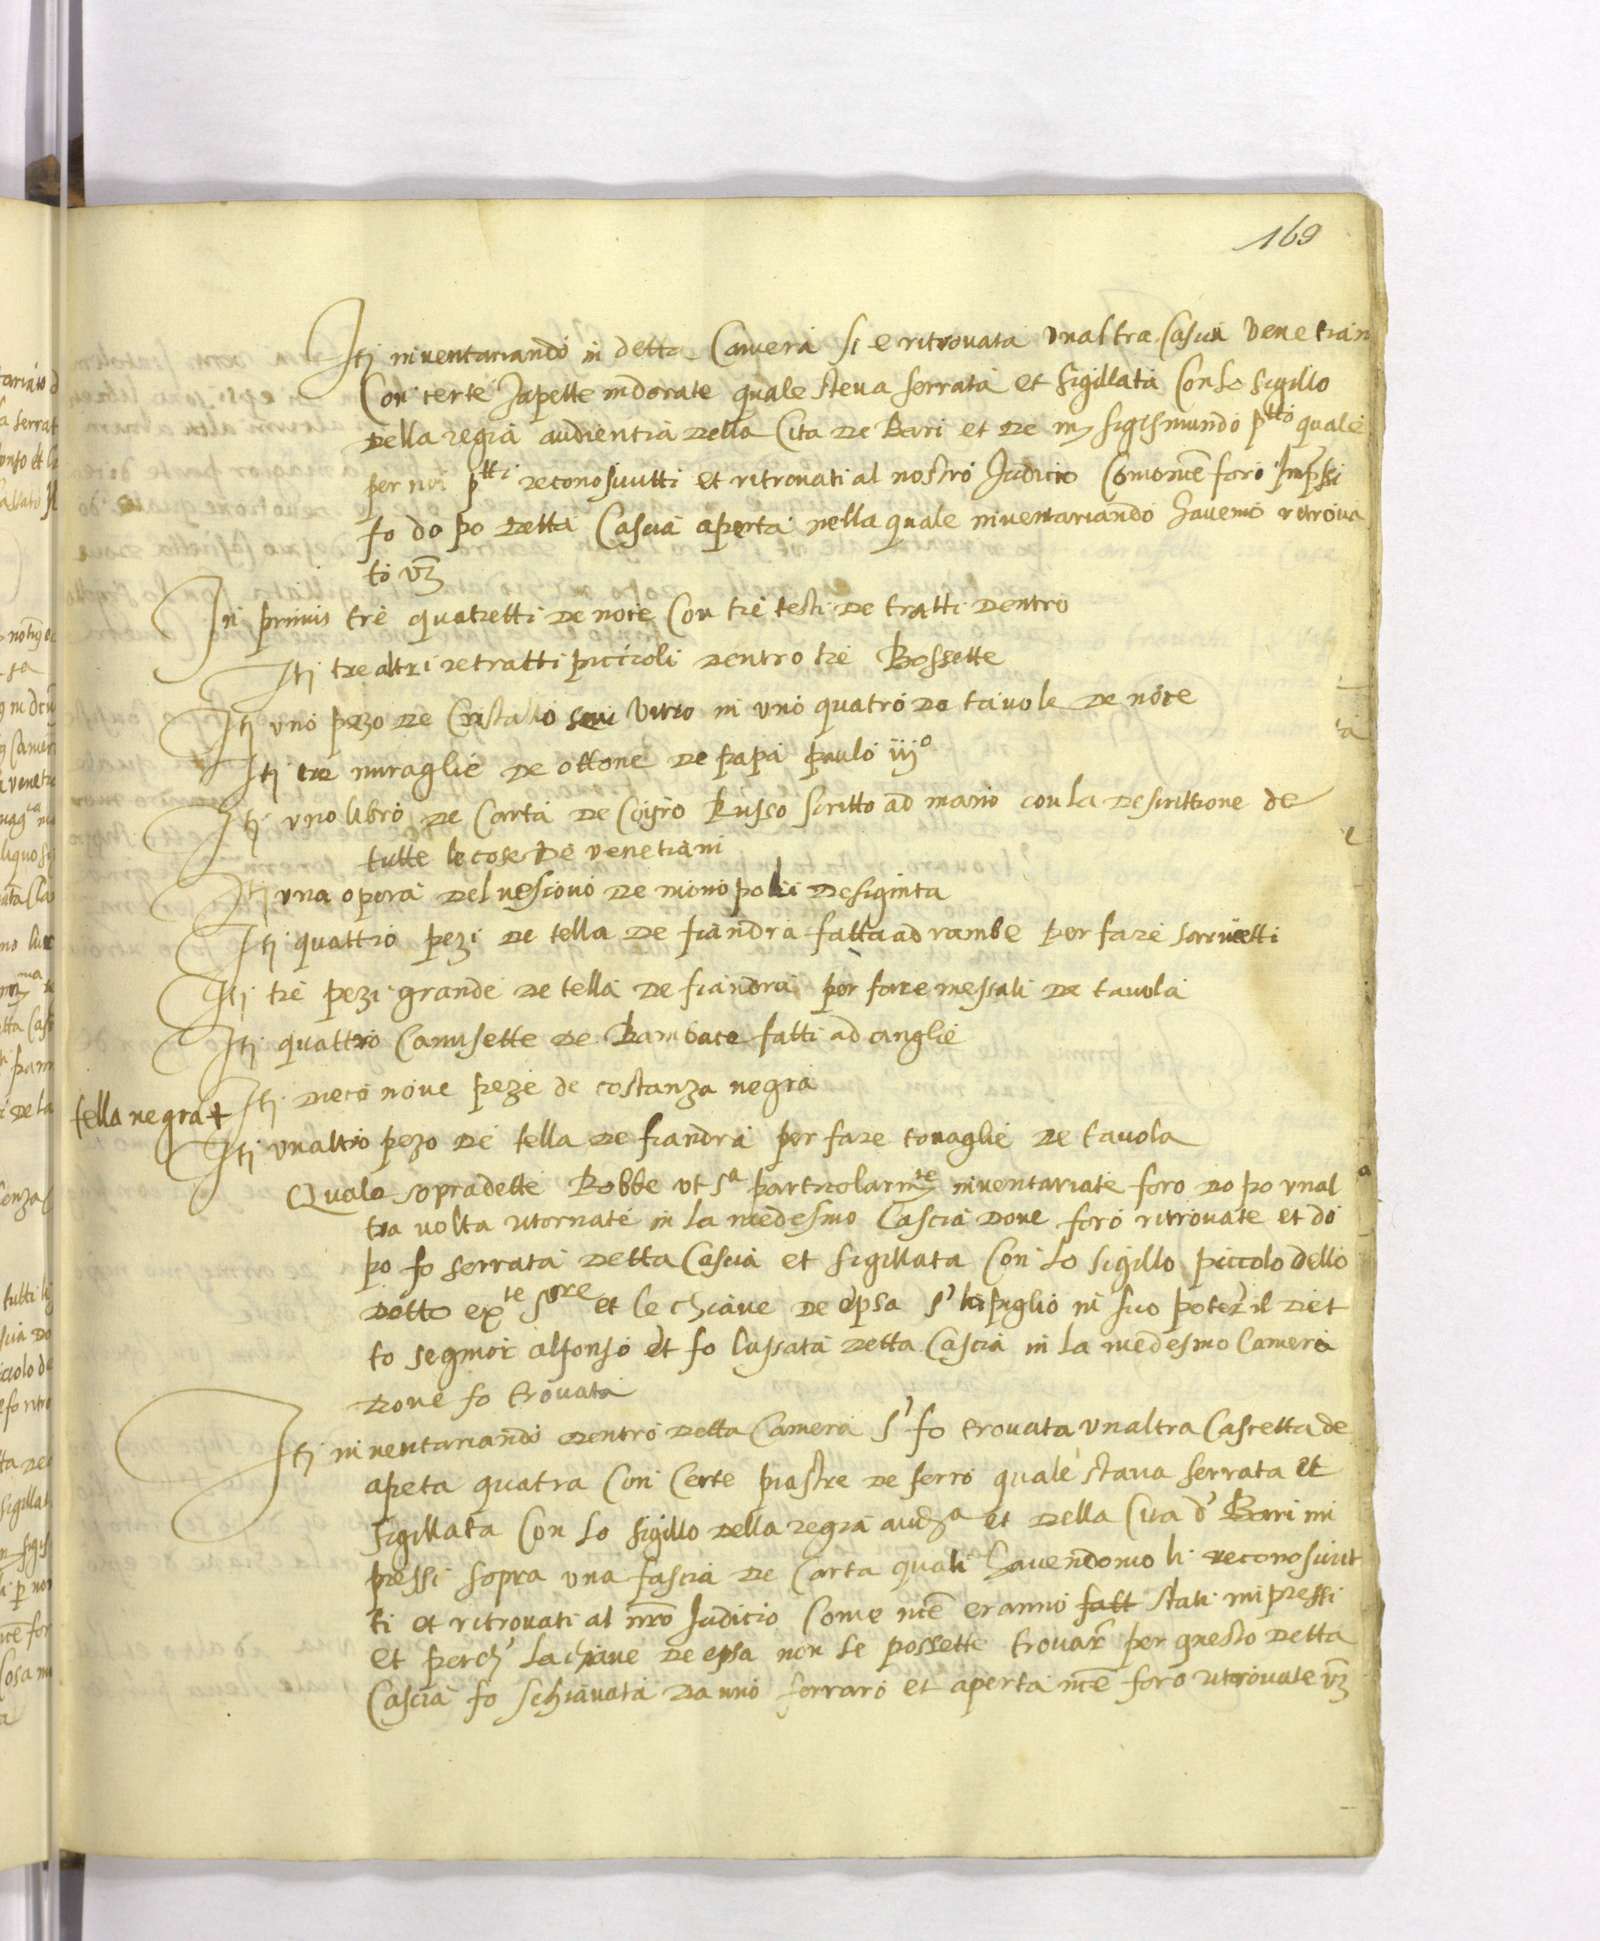 169
Itj inventariando in detta Camera si e ritrovata unaltra Cascia Venetian
Con certe Japette indorate quale steva serrata et sigillata Con lo sigillo
della regia audientia della Cita de Bari et de mʒ sigismundo ptto quale
per noi ptti reconosciutti et ritrovati al nostro Judicio Comonce foro Impssi
fo do po detta Cascia aperta nella quale inventariando havemo ritrova
to vʒ
In primis tre quatretti de noce Con tre testi de tratti dentro
Itj tre altri retratti piccioli dentro tre Bossette
Itj uno pezo de Cristallo seu vitro in uno quatro de tavole de noce
Itj tre miraglie de ottone de papa paulo iijo
Itj uno libro de Carta de Coiro Russo scritto ad mano con la descrittione de
tutte le cose de venetiani
Itj una opera del vescovo de monopoli
Itj quattro pezi de tella de fiandra fatta ad rambe per fare servietti
Itj tre pezi grande de tella de fiandra per fare messali de tavola
Itj quattro Camisette de Bambace fatti ad anglie
Itj dece nove peze de costanza negra
tella negra +
Itj unaltro pezo de tella de fiandra per fare tovaglie de tavola
Quale sopradette Robbe ut sa particolarmte inventariate foro do po unal
tra volta ritornate in la medesmo Cascia dove foro ritrovate et do
po fo serrata detta Cascia et sigillata Con lo sigillo piccolo dello
detto exte sore et le chiave de epsa s' li pigliò in suo poter il det
to segnior alfonso et fo lassata detta Cascia in la medesmo Camera
dove fo trovata
Itj inventariando dentro detta Camera s' fo trovata unaltra Cascetta de
apeta quatra Con Certe piastre de ferro quale stava serrata et
sigillata Con lo sigillo della regia audza et della Cita d' Bari im
pressi sopra una fascia de Carta quali havendomo li reconosciut
ti et ritrovati al nro Judicio Come nce eranno fatt stati impressi
et perch' la chiave de epsa non se possette trovar per questo detta
Cascia fo schiavata da uno ferraro et aperta nce foro ritrovate vʒ